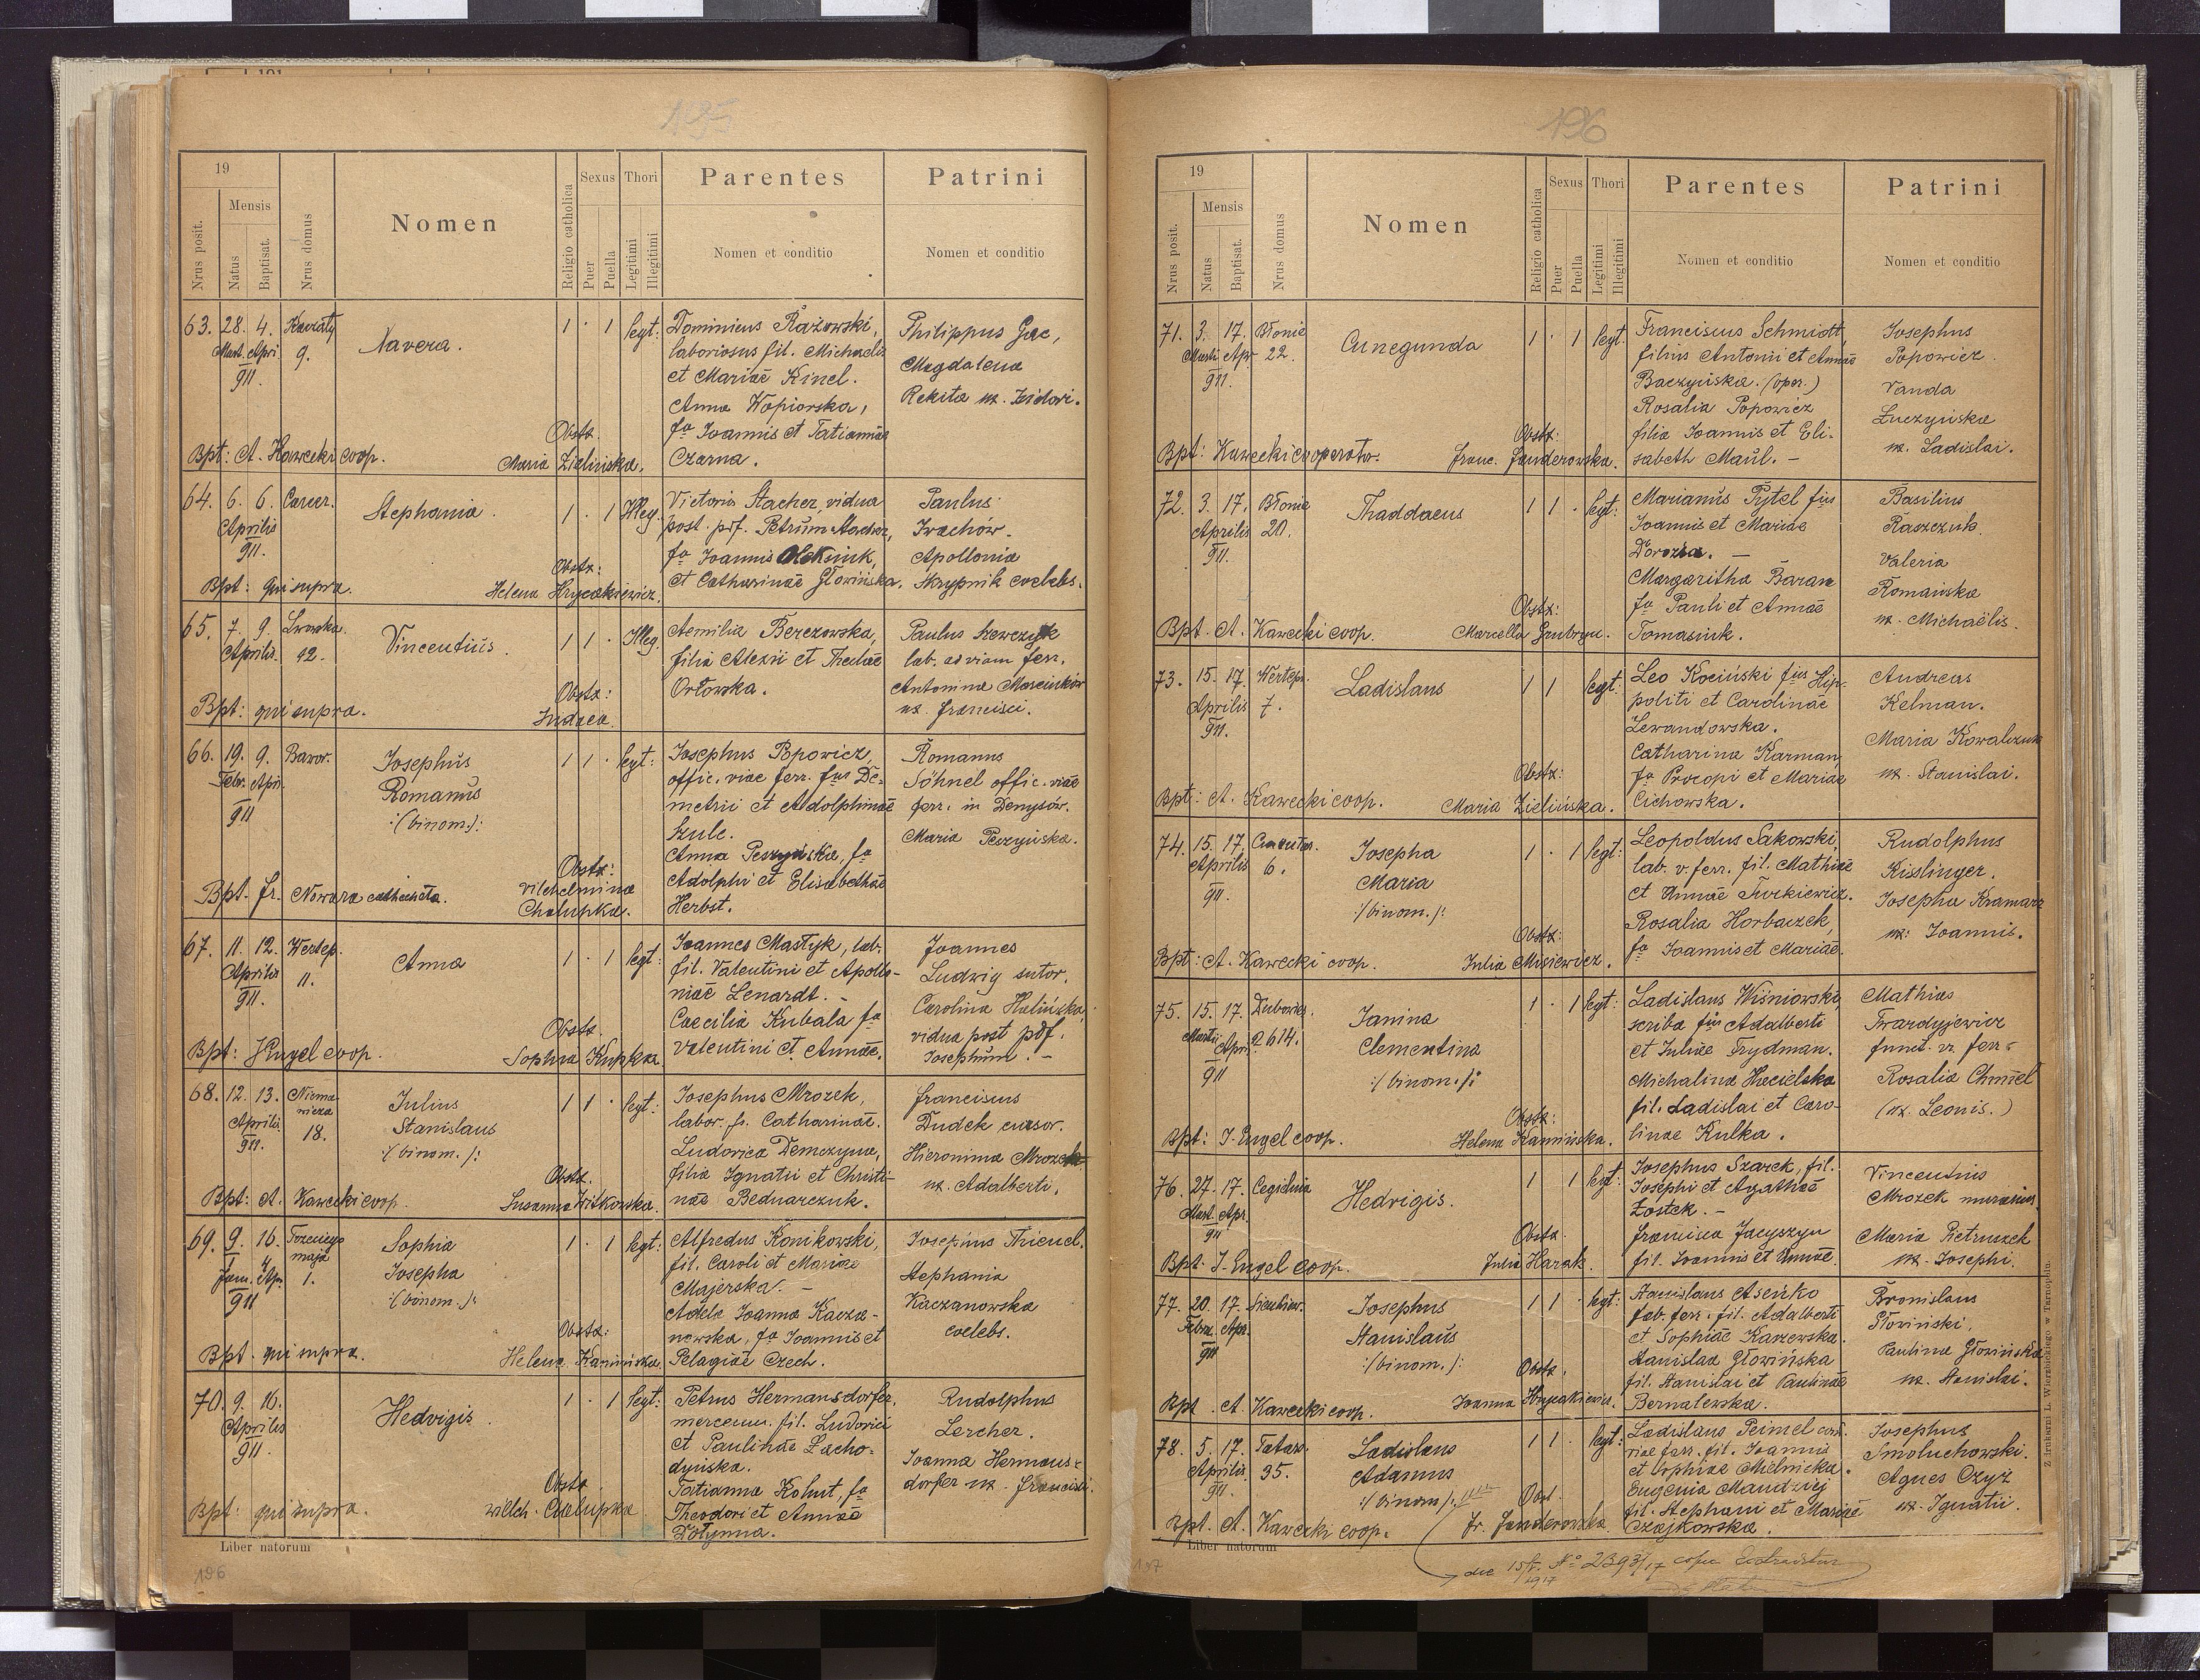 195
19
Mensis
Nrus posit.
Natus
Baptisat.
Nrus domus
Nomen
Religio catholica
Sexus
Puer
Puella
Thori
Legitimi
Illegitimi
Parentes
Nomen et conditio
Patrini
Nomen et conditio
63. 28. 4.
Mart. Apri.
911.
9.
1 · 1 legt:
Dominicus
laboriosus fil. Michaelis
et Mariae Kinel.
Anna Wopiorska,
fa Joannis et Tatiannae
Czarna.
Philippus Gac,
Magdalena
Rekita ux. Isidori.
Obstx.
Maria Zielińska.
Bpt: A. Kawecki coop.
64. 6. 6. Career.
Aprilis
911.
Stephania.
1 · 1 Illeg.
Victoria Stacher, vidua
post. pdf. Petrum Stacher,
fa Joannis Oleksiuk,
et Catharinae Głowińska.
Paulus
Iwachów.
Apollonia
Skrypnik coelebs.
Obstx:
Helena Hrycakiewicz.
Bpt: qui supra.
65. 7. 9. Lwowska.
Aprilis. 42.
Vincentius.
1 1 · Illeg.
Aemilia Berezowska,
filia Alexii et Theclae
Orłowska.
Paulus Szewczyk
lab. ad viam ferr.
Antonina Marcinków
ux. Francisci.
Obstx:
Judaea.
Bpt: qui supra.
66. 19. 9. Bawor.
Febr. Apri.
911
Josephus
Romanus
:(binom.):
1 1 · legt:
Josephus Popowicz,
offic. viae ferr. fus De-
metrii et Adolphinae
Szulc.
Anna Peszyńska, fa
Adolphi et Elisabethae
Herbst.
Romanus
Söhnel offic. viae
ferr. in Denysów.
Maria Peszyńska.
Obstx:
Vilchelmina
Chalupka.
Bpt. fr. Nowara catecheta.
67. 11. 12. Wertep.
Aprilis 11.
911.
Anna
1 · 1 legt:
Joannes Mastyk, lab.
fil. Valentini et Apollo-
niae Lenardt. -
Caecilia Kubala fa
Valentini et Annae.
Joannes
Ludwig sutor.
Carolina Halińska,
vidua post pdf.
Josephum. -
Obstx.
Sophia Kupka.
Bpt: Engel coop.
68. 12. 13.
Aprilis 18.
911.
Julius
Stanislaus
:(binom.):
1 1 · legt:
Josephus Mrozek,
labor. fs. Catharinae.
Ludovica Demczyna,
filia Ignatii et Christi-
nae Bednarczuk.
Franciscus
Dudek cursor.
Hieronima Mrozek
ux. Adalberti.
Obstx.
Susanna Witkowska.
Bpt: A. Kawecki coop.
69. 9. 16. Trzeciego
maja
Jan. Apr. 1.
911
Sophia
Josepha
:(binom.):
1 · 1 legt:
Alfredus Konikowski,
fil. Caroli et Mariae
Majerska. -
Adela Joanna Kacza-
nowska, fa Joannis et
Pelagiae Czech.
Josephus Thienel.
Stephania
Kaczanowska
coelebs.
Obstx:
Helena Kamińska.
Bpt. qui supra.
70. 9. 16.
Aprilis
911.
Hedvigis.
1 · 1 legt:
Petrus Hermansdorfer,
mercenn. fil. Ludovici
et Paulinae Lacho-
dyńska.
Tatianna Kohut, fa
Theodori et Annae
Rudolphus
Lercher.
Joanna Hermans-
dorfer ux. Francisci.
Obstx
Wilch. Chalupka
Bpt: qui supra.
Liber natorum
196
196
19
Mensis
Nrus posit.
Natus
Baptisat.
Nrus domus
Nomen
Religio catholica
Sexus
Puer
Puella
Thori
Legitimi
Illegitimi
Parentes
Nomen et conditio
Patrini
Nomen et conditio
71. 3. 17. Błonie
Martii Apr. 22.
911.
Cunegunda
1 · 1 legt.
Franciscus Schmidt,
filius Antonii et Annae
Baczyńska. (oper.)
Rosalia Popowicz
filia Joannis et Eli-
sabeth Maul. -
Josephus
Popowicz.
Vanda
Łuczyńska
ux. Ladislai.
Obstx:
Franc. Fanderowska.
Bpt: Kawecki cooperator.
72. 3. 17. Błonie
Aprilis 20.
911.
Thaddaeus
1 1 · legt:
Marianus Pytel fus
Joannis et Mariae
Dorozia. -
Margaritha Baran
fa Pauli et Annae
Tomasiuk.
Basilius
Raszczuk.
Valeria
Romańska
ux. Michaëlis.
Obstx:
Marcella Grubryn.
Bpt. A. Kawecki coop.
73. 15. 17. Wertep.
Aprilis 7.
911.
Ladislaus
1 1 legt:
Leo Kociński fus Hip-
politi et Carolinae
Lewandowska.
Catharina Karman,
fa Procopi et Mariae
Cichowska.
Andreas
Kelman.
Maria Kowalczuk
ux. Stanislai.
Obstx:
Maria Zielińska.
Bpt: A. Kawecki coop.
74. 15. 17.
Aprilis 6.
911.
Josepha
Maria
:/binom./:
1 · 1 legt:
Leopoldus Sakowski,
lab. v. ferr. fil. Mathiae
et Annae Turkiewicz.
Rosalia Horbaczek,
fa Joannis et Mariae.
Rudolphus
Kisslinger.
Josepha Kramarz
ux: Joannis.
Obstx:
Julia Misiewicz.
Bpt: A. Kawecki coop.
75. 15. 17.
Martii Apri. 2614.
911
Janina
Clementina
:/binom./:
1 · 1 legt:
Ladislaus Wiśniowski,
scriba fus Adalberti
et Juliae Frydman.
Michalina Hacielska
fil. Ladislai et Caro-
linae Kulka.
Mathias
Twardyjewicz
funct. vi. ferr.
Rosalia Chmiel
(ux. Leonis.)
Obstx:
Helena Kamińska.
Bpt: J. Engel coop.
76. 27. 17. Cegielnia
Mart. Apr.
911
Hedvigis.
1 1 legt:
Josephus Szarek, fil.
Josephi et Agathae
Łostek. -
Francisca Jacyszyn
fil. Joannis et Annae.
Vincentius
Mrozek murarius.
Maria Pietruszek
ux. Josephi.
Obstx.
Julia Harak.
Bpt. J. Engel coop.
77. 20. 17.
Febru. Apr.
911
Josephus
Stanislaus
:/binom./:
1 1 · legt:
Stanislaus Asenko
lab. ferr. fil. Adalberti
et Sophiae Karzewska.
Stanislaa Głowińska
fil. Stanislai et Paulinae
Bernalewska.
Bronislaus
Słowiński,
Paulina Głowińska
ux. Stanislai.
Obstx.
Joanna Hrycakiewicz.
Bpt. A. Kawecki coop.
78. 5. 17. Tatars.
Aprilis 35.
911.
Ladislaus
Adamus
:/binom/:
1 1 · legt:
Ladislaus Peimel
viae ferr. fil. Joannis
et Sophiae Mielnicka.
Eugenia Mandziej
fil. Stephani et Mariae
Czajkowska.
Josephus
Smoluchowski.
Agnes Czyż
ux. Ignatii.
Obst.
Fr. Fanderowska
Bpt. A. Kawecki coop.
Liber natorum
die 15/7. No 2393/17 copia
1917
Z drukarni L. Wierzbickiego w Tarnopolu.